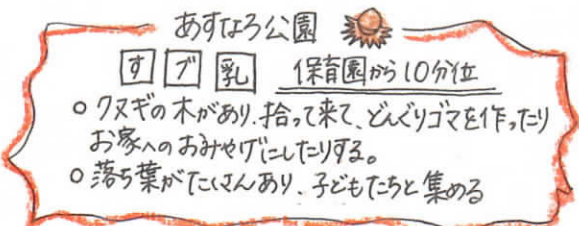 あすなろ公園
す ブ 乳 保育園から10分位
○クヌギの木があり、拾って来て、どんぐりゴマを作ったり
お家へのおみやげにしたりする。
○落ち葉がたくさんあり、子どもたちと集める